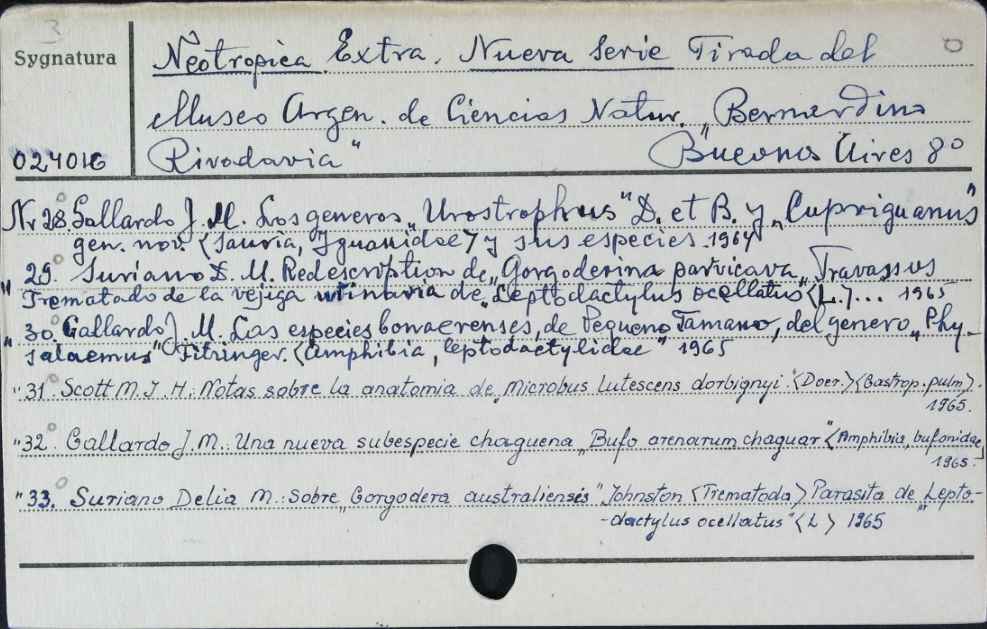 3
Sygnatura
Neotropica Extra. Nueva Serie Tirada del
Museo Argen. de Ciencias Natur. „Bernardino
024016
Rivadavia" Buenos Aires 8°
Nr 28. Gallardo J. M. Los generos „Urostrophus" D. et B. y „Cupriguanus"
gen. nov. <Sauria, Iguanidae> y sus especies 1964
" 29. Suriano D. M. Redescription de „Gorgoderina parvicava„ Travassos
Trematodo de la vejiga urinaria de „Leptodactylus ocellatus" <L.)... 1965
" 30. Gallardo J. M. Las especies bonaerenses, de Pequeno Tamano, del genero „Phy-
salaemus" Fitzinger. <Amphibia, leptodactylidae" 1965
"31. Scott M. I. H.: Notas sobre la anatomia de „Microbus lutescens dorbignyi. <Doer.> <Gastrop. pulm>.
1965.
"32. Gallardo J. M.: Una nueva subespecie chaguena „Bufo arenarum chaguar" <Amphibia, bufonidae,
1965.
"33. Suriano Delia M.: Sobre „Gorgodera australiensis" Johnston <Trematoda> Parasita de „Lepto-
-dactylus ocellatus" <L> 1965